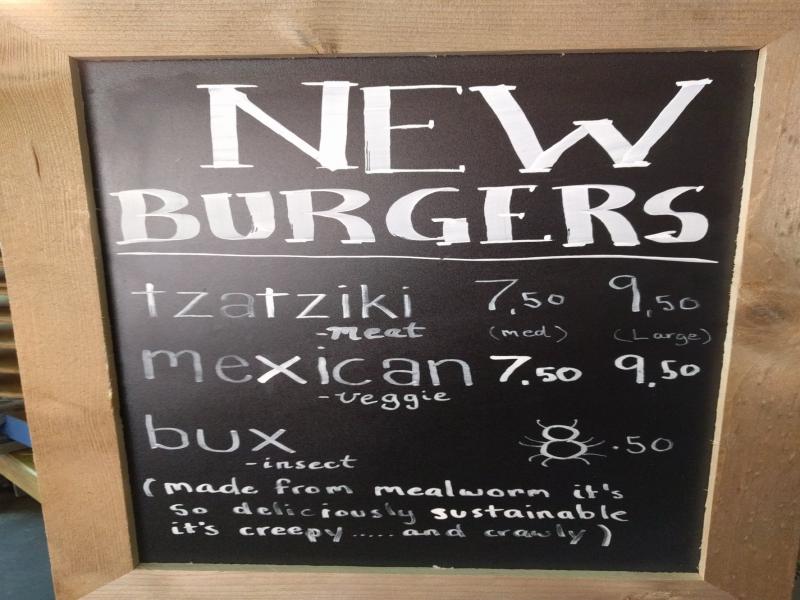 NEW
BURGERS
tzatziki 7,50 9,50
-meat (med) (Large)
mexican 7.50 9.50
-veggie
bux 8.50
-insect
(made from mealworm it's
so deliciously sustainable
it's creepy.....and crawly)